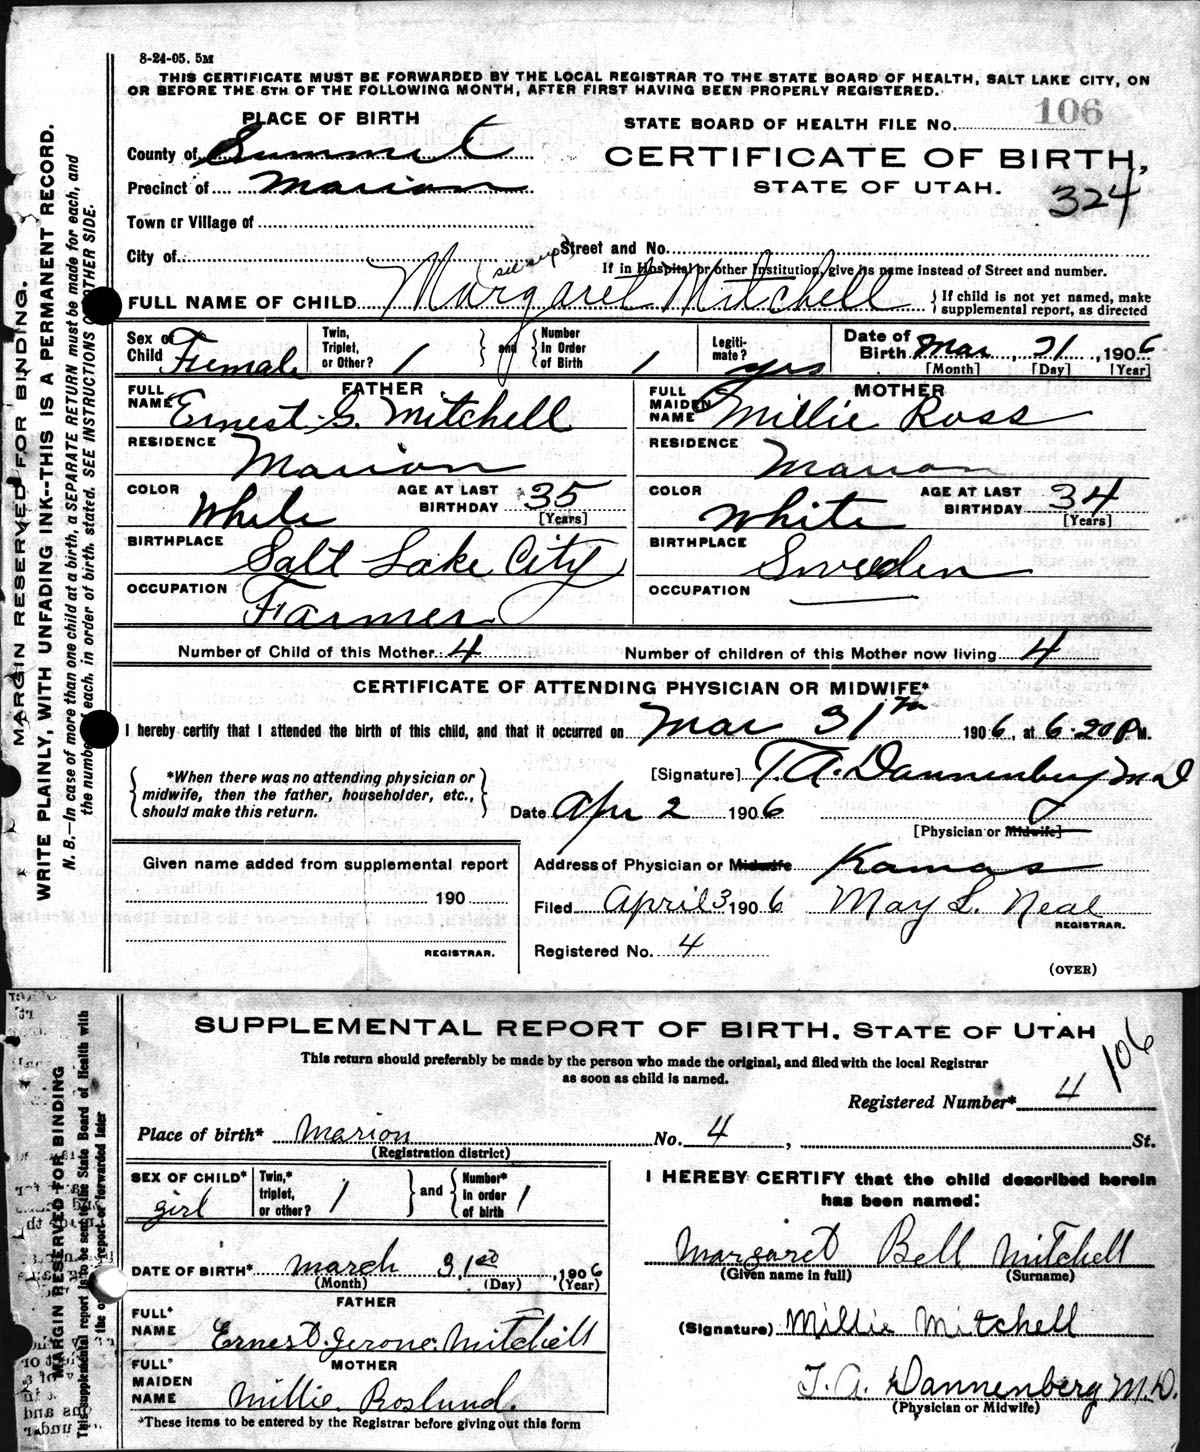 8-24-05. 5M
THIS CERTIFICATE MUST BE FORWARDED BY THE LOCAL REGISTRAR TO THE STATE BOARD OF HEALTH, SALT LAKE CITY, ON
OR BEFORE THE 5TH OF THE FOLLOWING MONTH, AFTER FIRST HAVING BEEN PROPERLY REGISTERED.
PLACE OF BIRTH
STATE BOARD OF HEALTH FILE No. 106
County of Summit
CERTIFICATE OF BIRTH,
Precinct of Marion
STATE OF UTAH.
324
Town or Village of
City of
Street and No.
(see sup)
If in Hospital or other Institution, give its name instead of Street and number.
FULL NAME OF CHILD Margaret Mitchell
{ If child is not yet named, make
supplemental report, as directed
Sex of Child Female
Twin, Triplet, or Other? 1
and
Number In Order of Birth 1
Legiti-mate? yes
Date of Birth Mar, 31, 1906
[Month] [Day] [Year]
FATHER
FULL NAME Ernest G. Mitchell
RESIDENCE Marion
COLOR White
AGE AT LAST BIRTHDAY 35
[Years]
BIRTHPLACE Salt Lake City
OCCUPATION Farmer
MOTHER
FULL MAIDEN NAME Millie Ross
RESIDENCE Marion
COLOR White
AGE AT LAST BIRTHDAY 34
[Years]
BIRTHPLACE Sweden
OCCUPATION
Number of Child of this Mother 4
Number of children of this Mother now living 4
CERTIFICATE OF ATTENDING PHYSICIAN OR MIDWIFE*
I hereby certify that I attended the birth of this child, and that it occurred on Mar 31th 1906, at 6:20 P. M.
*When there was no attending physician or
midwife, then the father, householder, etc.,
should make this return.
[Signature] T. A. Dannenberg M D
Date Apr 2 1906
[Physician or Midwife]
Given name added from supplemental report
190
REGISTRAR.
Address of Physician or Midwife Kamas
Filed April 3 1906 May L. Neal
REGISTRAR.
Registered No. 4
(OVER)
MARGIN RESERVED FOR BINDING.
WRITE PLAINLY, WITH UNFADING INK--THIS IS A PERMANENT RECORD.
N. B.—In case of more than one child at a birth, a SEPARATE RETURN must be made for each, and
the number of each, in order of birth, stated. SEE INSTRUCTIONS OTHER SIDE.
SUPPLEMENTAL REPORT OF BIRTH, STATE OF UTAH
This return should preferably be made by the person who made the original, and filed with the local Registrar
as soon as child is named.
106
Registered Number* 4
Place of birth* Marion No. 4, St.
(Registration district)
SEX OF CHILD* girl
Twin,* triplet, or other? 1
and
Number* In order of birth 1
DATE OF BIRTH* March 31st, 1906
(Month) (Day) (Year)
FATHER
FULL* NAME Ernest Jerone Mitchell
MOTHER
FULL* MAIDEN NAME Millie Roslund.
*These items to be entered by the Registrar before giving out this form
I HEREBY CERTIFY that the child described herein
has been named:
Margaret Bell Mitchell
(Given name in full) (Surname)
(Signature) Millie Mitchell
T. A. Dannenberg M.D.
(Physician or Midwife)
MARGIN RESERVED FOR BINDING
This supplemental report is to be sent to the State Board of Health with
the report or forwarded later